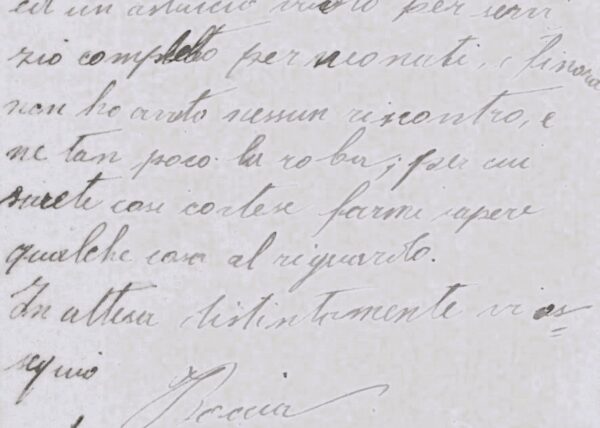 ed un astuccio vuoto per servi
zio completo per neonati, e finora
non ho avuto nessun riscontro, e
ne tan poco la roba; per cui
sarete così cortese farmi sapere
qualche cosa al riguardo.
In attesa distintamente vi os=
sequio